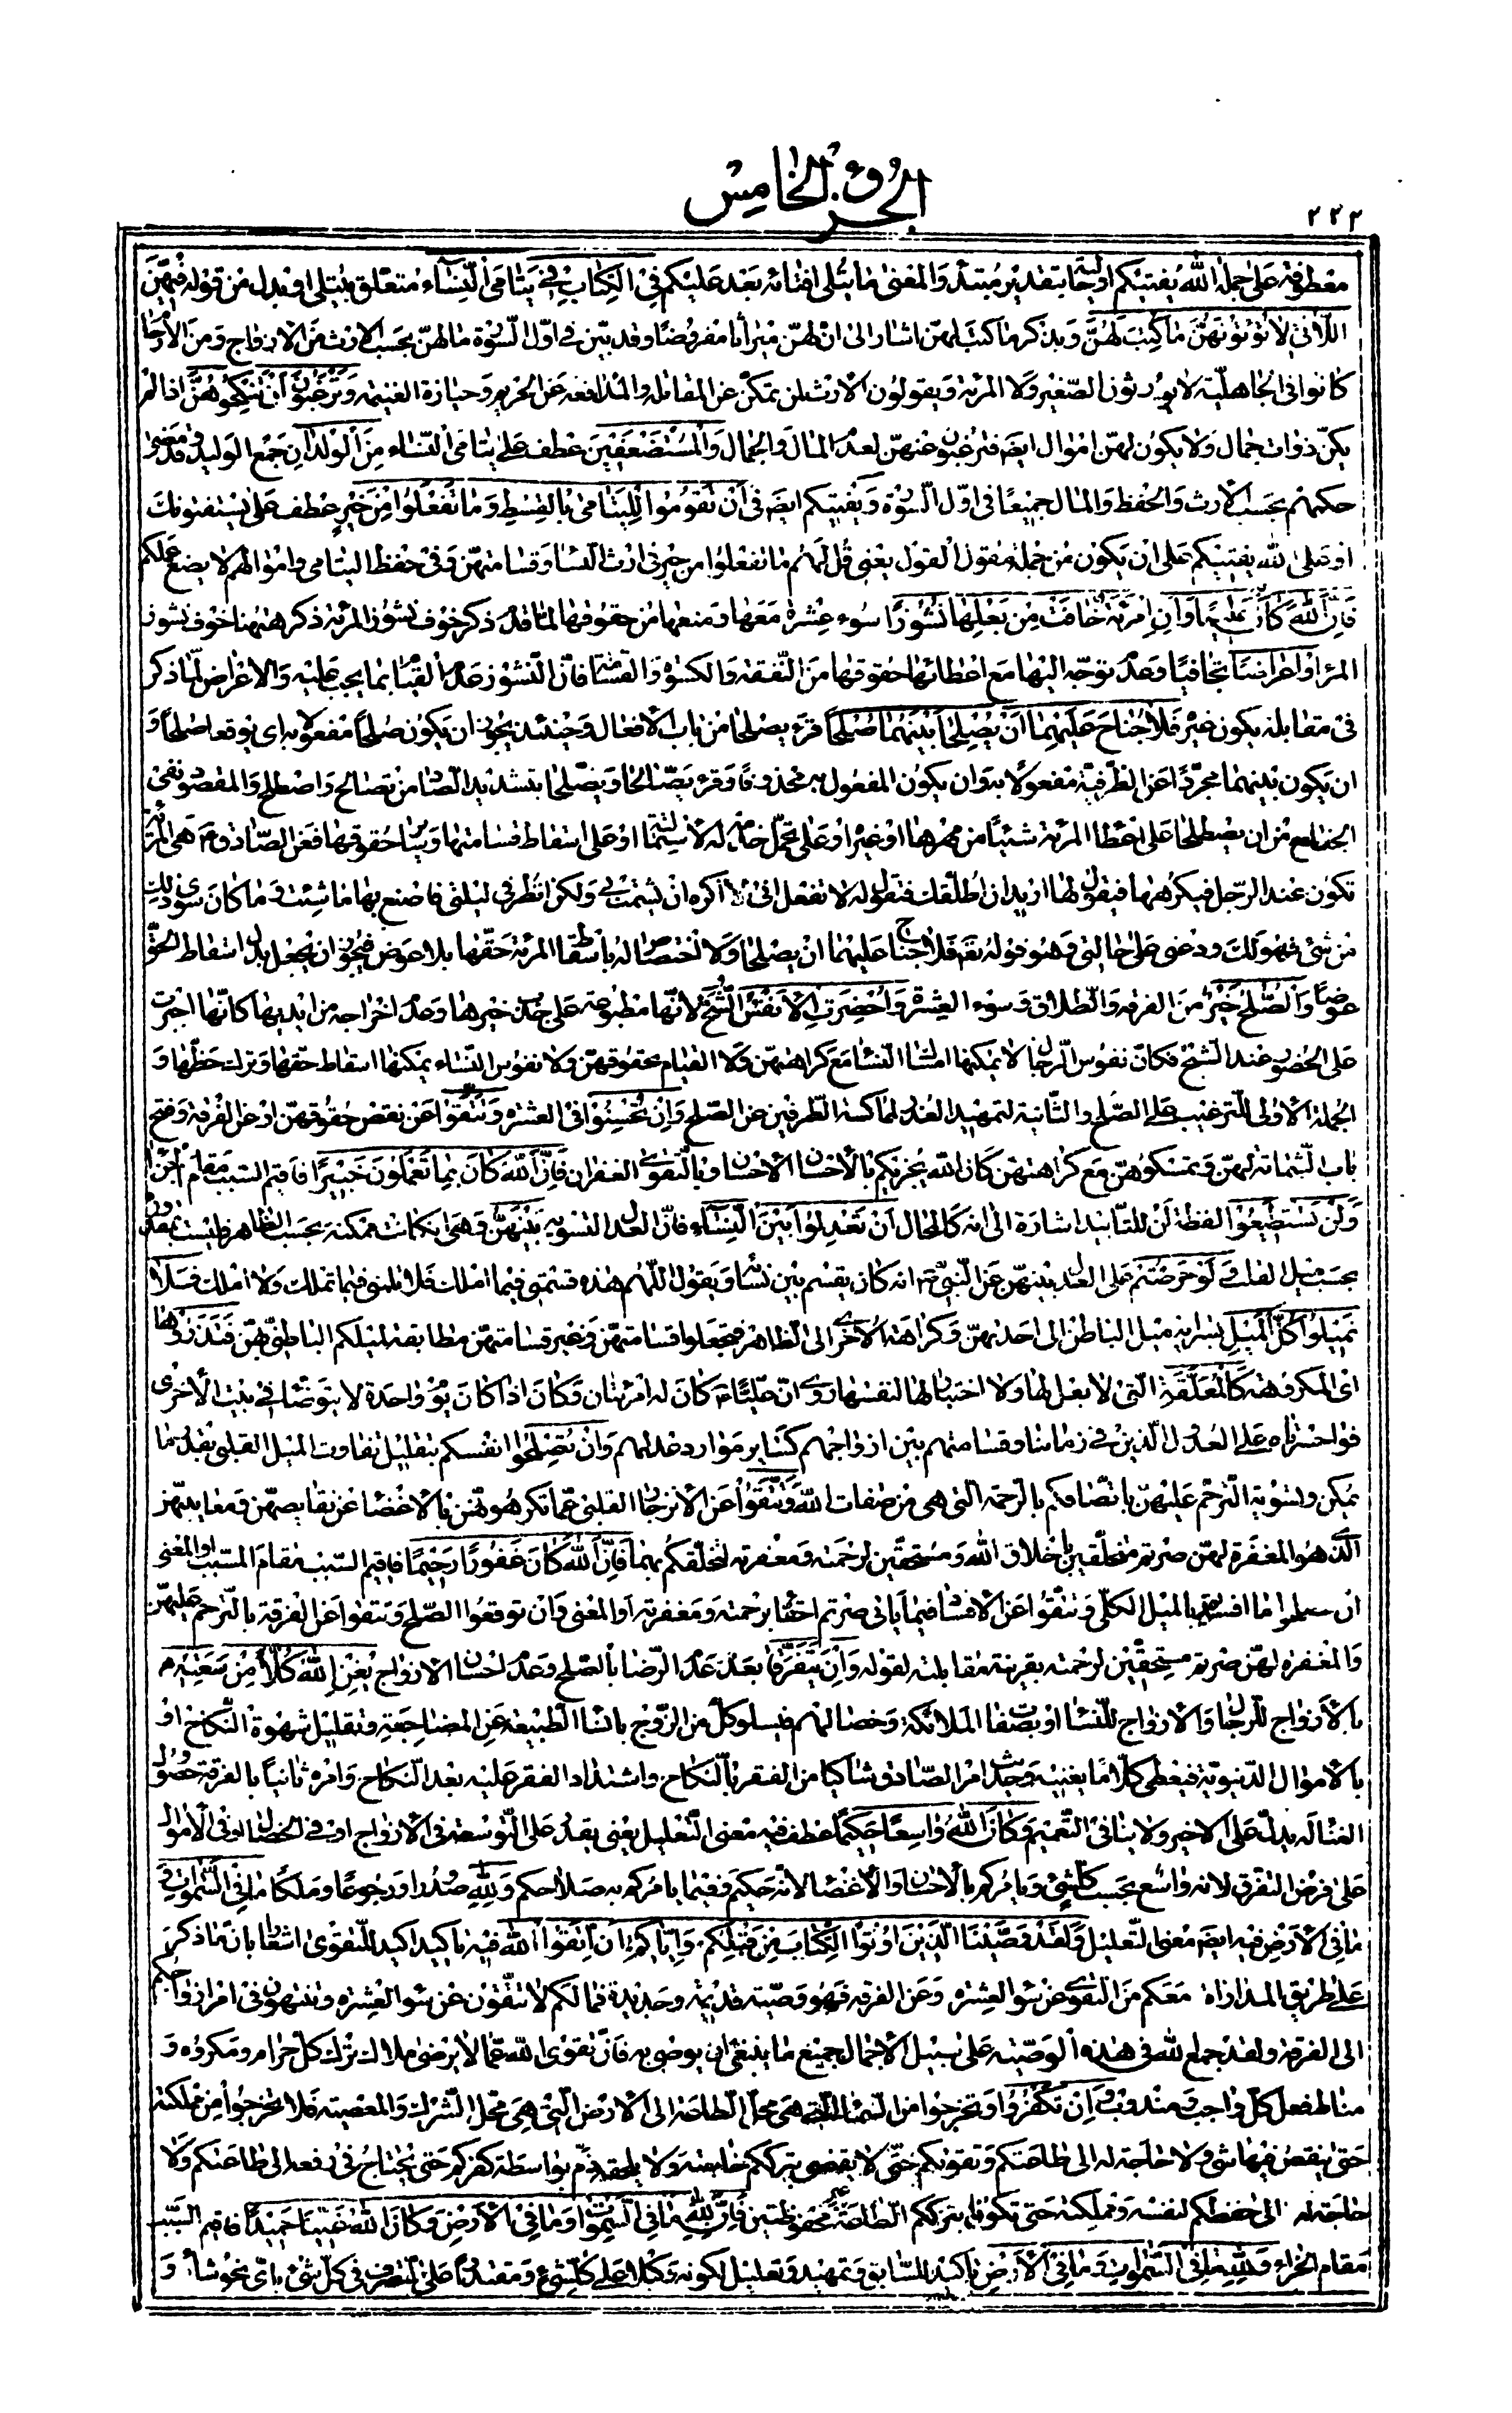 الجزء الخامس
٢٢٢
معطوفة على جملة الله يفتيكم او حال بتقدير مبتدأ والمعنى ما يتلى افتائه بعد عليكم في الكتاب في يتامى النساء متعلق بيتلى او بدل من قوله فيهن
اللاتي لا تؤتونهن ما كتب لهن وبذكر ما كتب لهن اشار الى ان لهن ميراثا مفروضا وقد بين في اول السورة ما لهن بحسب الارث من الازواج ومن الارحام
كانوا في الجاهلية لا يورثون الصغير ولا المرئة ويقولون الارث لمن تمكن عن المقاتلة والمدافعة عن الحريم وحيازة الغنيمة وترغبون ان تنكحوهن اذا لم
يكن ذوات جمال ولا يكون لهن اموال ايضا فترغبون عنهن لعدم المال والجمال والمستضعفين عطف على يتامى النساء من الولدان جمع الوليد وقد مضى
حكمهم بحسب الارث والحفظ والمال جميعا في اول السورة ويفتيكم ايضا في ان تقوموا لليتامى بالقسط وما تفعلوا من خير عطف على يستفتونك
او على الله يفتيكم على ان يكون من جملة مقول القول يعنى قل لهم ما تفعلوا من خير في ارث النساء وقسامتهن وفى حفظ اليتامى واموالهم لا يضع عملكم
فان الله كان به عليما وان امرئة خافت من بعلها نشوزا سوء عشرة معها ومنعها من حقوقها لما قدم ذكر خوف نشوز المرئة ذكر ههنا خوف نشوز
المرء او اعراضا تجافيا وعدم توجه اليها مع اعطائها حقوقها من النفقة والكسوة والقسامة فان النشوز عدم القيام بما يجب عليه والاعراض لما ذكر
في مقابله يكون غيره فلا جناح عليهما ان يصلحا بينهما صلحا قرء يصلحا من باب الافعال وحينئذ يجوز ان يكون صلحا مفعولا به اى يوقعا صلحا و
ان يكون بينهما مجردا عن الظرفية مفعولا به وان يكون المفعول به محذوفا وقرء يصالحا ويصلحا بتشديد الصاد من تصالح واصطلح والمقصود نفى
الجناح من ان يصطلحا على اعطاء المرئة شيئا من مهرها او غيره او على تحمل خدمة له لاستمالته او على اسقاط قسامتها وساير حقوقها فعن الصادق ع هى المرئة
تكون عند الرجل فيكرهها فيقول لها اريد ان اطلقك فتقول له لا تفعل انى اكره ان تشمت بى ولكن انظر في ليلتى فاصنع بها ما شئت وما كان سوى ذلك
من شئ فهو لك ودعنى على حالتى وهو قوله تعالى فلا جناح عليهما ان يصلحا ولا اختصاص له باسقاط المرئة حقها بلا عوض فيجوز ان يجعل بدل اسقاط الحق
عوضا والصلح خير من الفرقة والطلاق وسوء العشرة واحضرت الانفس الشح لانها مطبوعة على جذب خيرها وعدم اخراجه من ايديها كانها اجبرت
على الحضور عند الشح فكان نفوس الرجال لا يمكنها امساك النساء مع كراهتهن ولا القيام بحقوقهن ولا نفوس النساء يمكنها اسقاط حقها وترك حظها و
الجملة الاولى للترغيب على الصلح والثانية لتمهيد العذر لمماكسة الطرفين عن الصلح وان تحسنوا في العشرة وتتقوا عن نقض حقوقهن او عن الفرقة وفتح
باب الشماتة لهن وتمسكوهن مع كراهتهن كان الله يجزيكم بالاحسان الاحسان وبالتقوى الغفران فان الله كان بما تعملون خبيرا فاقيم السبب مقام الجزاء
ولن تستطيعوا لفظة لن للتأبيد اشارة الى انه كالمحال ان تعدلوا بين النساء فان العدل التسوية بينهن وهى ان كانت ممكنة بحسب الظاهر فليست بمقدورة
بحسب ميل القلب ولو حرصتم على العدل بينهن عن النبى ص انه كان يقسم بين نسائه ويقول اللهم هذه قسمتى فيما املك فلا تلمنى فيما تملك ولا املك فلا
تميلوا كل الميل بسراية ميل الباطن الى احديهن وكراهة الاخرى الى الظاهر فتجعلوا قسامتهن وغير قسامتهن مطابقة لميلكم الباطنى بهن فتذروها
اى المكروهة كالمعلقة التى لا بعل لها ولا اختيار لها لنفسها روى ان عليا ع كان له امرئتان وكان اذا كان يوم واحدة لا يتوضأ في بيت الاخرى
فواحسرتاه على العدول الذين في زماننا وقسامتهم بين ازواجهم كساير موارد عدلهم وان تصلحوا انفسكم بتقليل تفاوت الميل القلبى بقدر ما
يمكن وتسوية الترحم عليهن باتصافكم بالرحمة التى هى من صفات الله وتتقوا عن الانزجار القلبى عما تكرهونهن بالاغضاء عن نقايصهن ومعايبهن
الذى هو المغفرة لهن صرتم متخلقين باخلاق الله ومستحقين لرحمته ومغفرته لتخلقكم بهما فان الله كان غفورا رحيما فاقيم السبب مقام المسبب او المعنى
ان تصلحوا ما افسدتم بالميل الكلى وتتقوا عن الافساد فيما يأتى صرتم احقاء برحمته ومغفرته او المعنى وان توقعوا الصلح وتتقوا عن الفرقة بالترحم عليهن
والمغفرة لهن صرتم مستحقين لرحمته بقرينة مقابلته لقوله وان يتفرقا بعد عدم الرضا بالصلح وعدم احسان الازواج يغن الله كلا من سعته
بالازواج للرجال والازواج للنساء او بصفات الملائكة وخصالهم فيسلو كل من الزوج بانسا الطبيعة عن المضاجعة وتقليل شهوة النكاح او
بالاموال الدنيوية فيعطى كلا ما يغنيه وحديث امر الصادق شاكيا من الفقر بالنكاح واشتداد الفقر عليه بعد النكاح وامره ثانيا بالفرقة وحصول
الغنا له يدل على الاخير ولا ينافى التعميم وكان الله واسعا حكيما عطف فيه معنى التعليل يعنى يقدر على التوسعة في الازواج او في الخصال او في الاموال
على فرض التفرق لانه واسع بحسب كل شئ ويأمركم بالاحسان والاغضاء لانه حكيم وفيما يأمركم به صلاحكم ولله صدورا ورجوعا وملكا ما في السموات و
ما في الارض فيه ايضا معنى التعليل ولقد وصينا الذين اوتوا الكتاب من قبلكم واياكم ان اتقوا الله فيه تأكيد اكيد للتقوى اشعارا بان ما ذكر
على طريق المداراة معكم من التقوى عن سوء العشرة وعن الفرقة فهو وصيته قديمة وجديدة فما لكم لا تتقون عن سوء العشرة وتنتهون في امر ازواجكم
الى الفرقة ولقد جمع الله في هذه الوصية على سبيل الاجمال جميع ما ينبغى ان يوصى به فان تقوى الله عما لا يرضى ملاك ترك كل حرام ومكروه و
مناط فعل كل واجب ومندوب وان تكفروا وتخرجوا من السماء التى هى محل الطاعة الى الارض التى هى محل الشرك والمعصية فلا تخرجوا من مملكته
حتى ينقص فيها شئ ولا حاجة له الى طاعتكم وتقويكم حتى لا يقضى بترككم حاجته ولا يلحقه ذم بواسطة كفركم حتى يحتاج في رفعه الى طاعتكم ولا
حاجة له الى حفظكم لنفسه ومملكته حتى تكونوا بترككم الطاعة غير محفوظين فان لله ما في السموات وما في الارض وكان الله غنيا حميدا فاقيم السبب
مقام الجزاء ولله ما في السموات وما في الارض تأكيد للسابق وتمهيد وتعليل لكونه وكيلا على كل شئ ومقتدرا على التصرف في كل شئ باى نحو شاء و